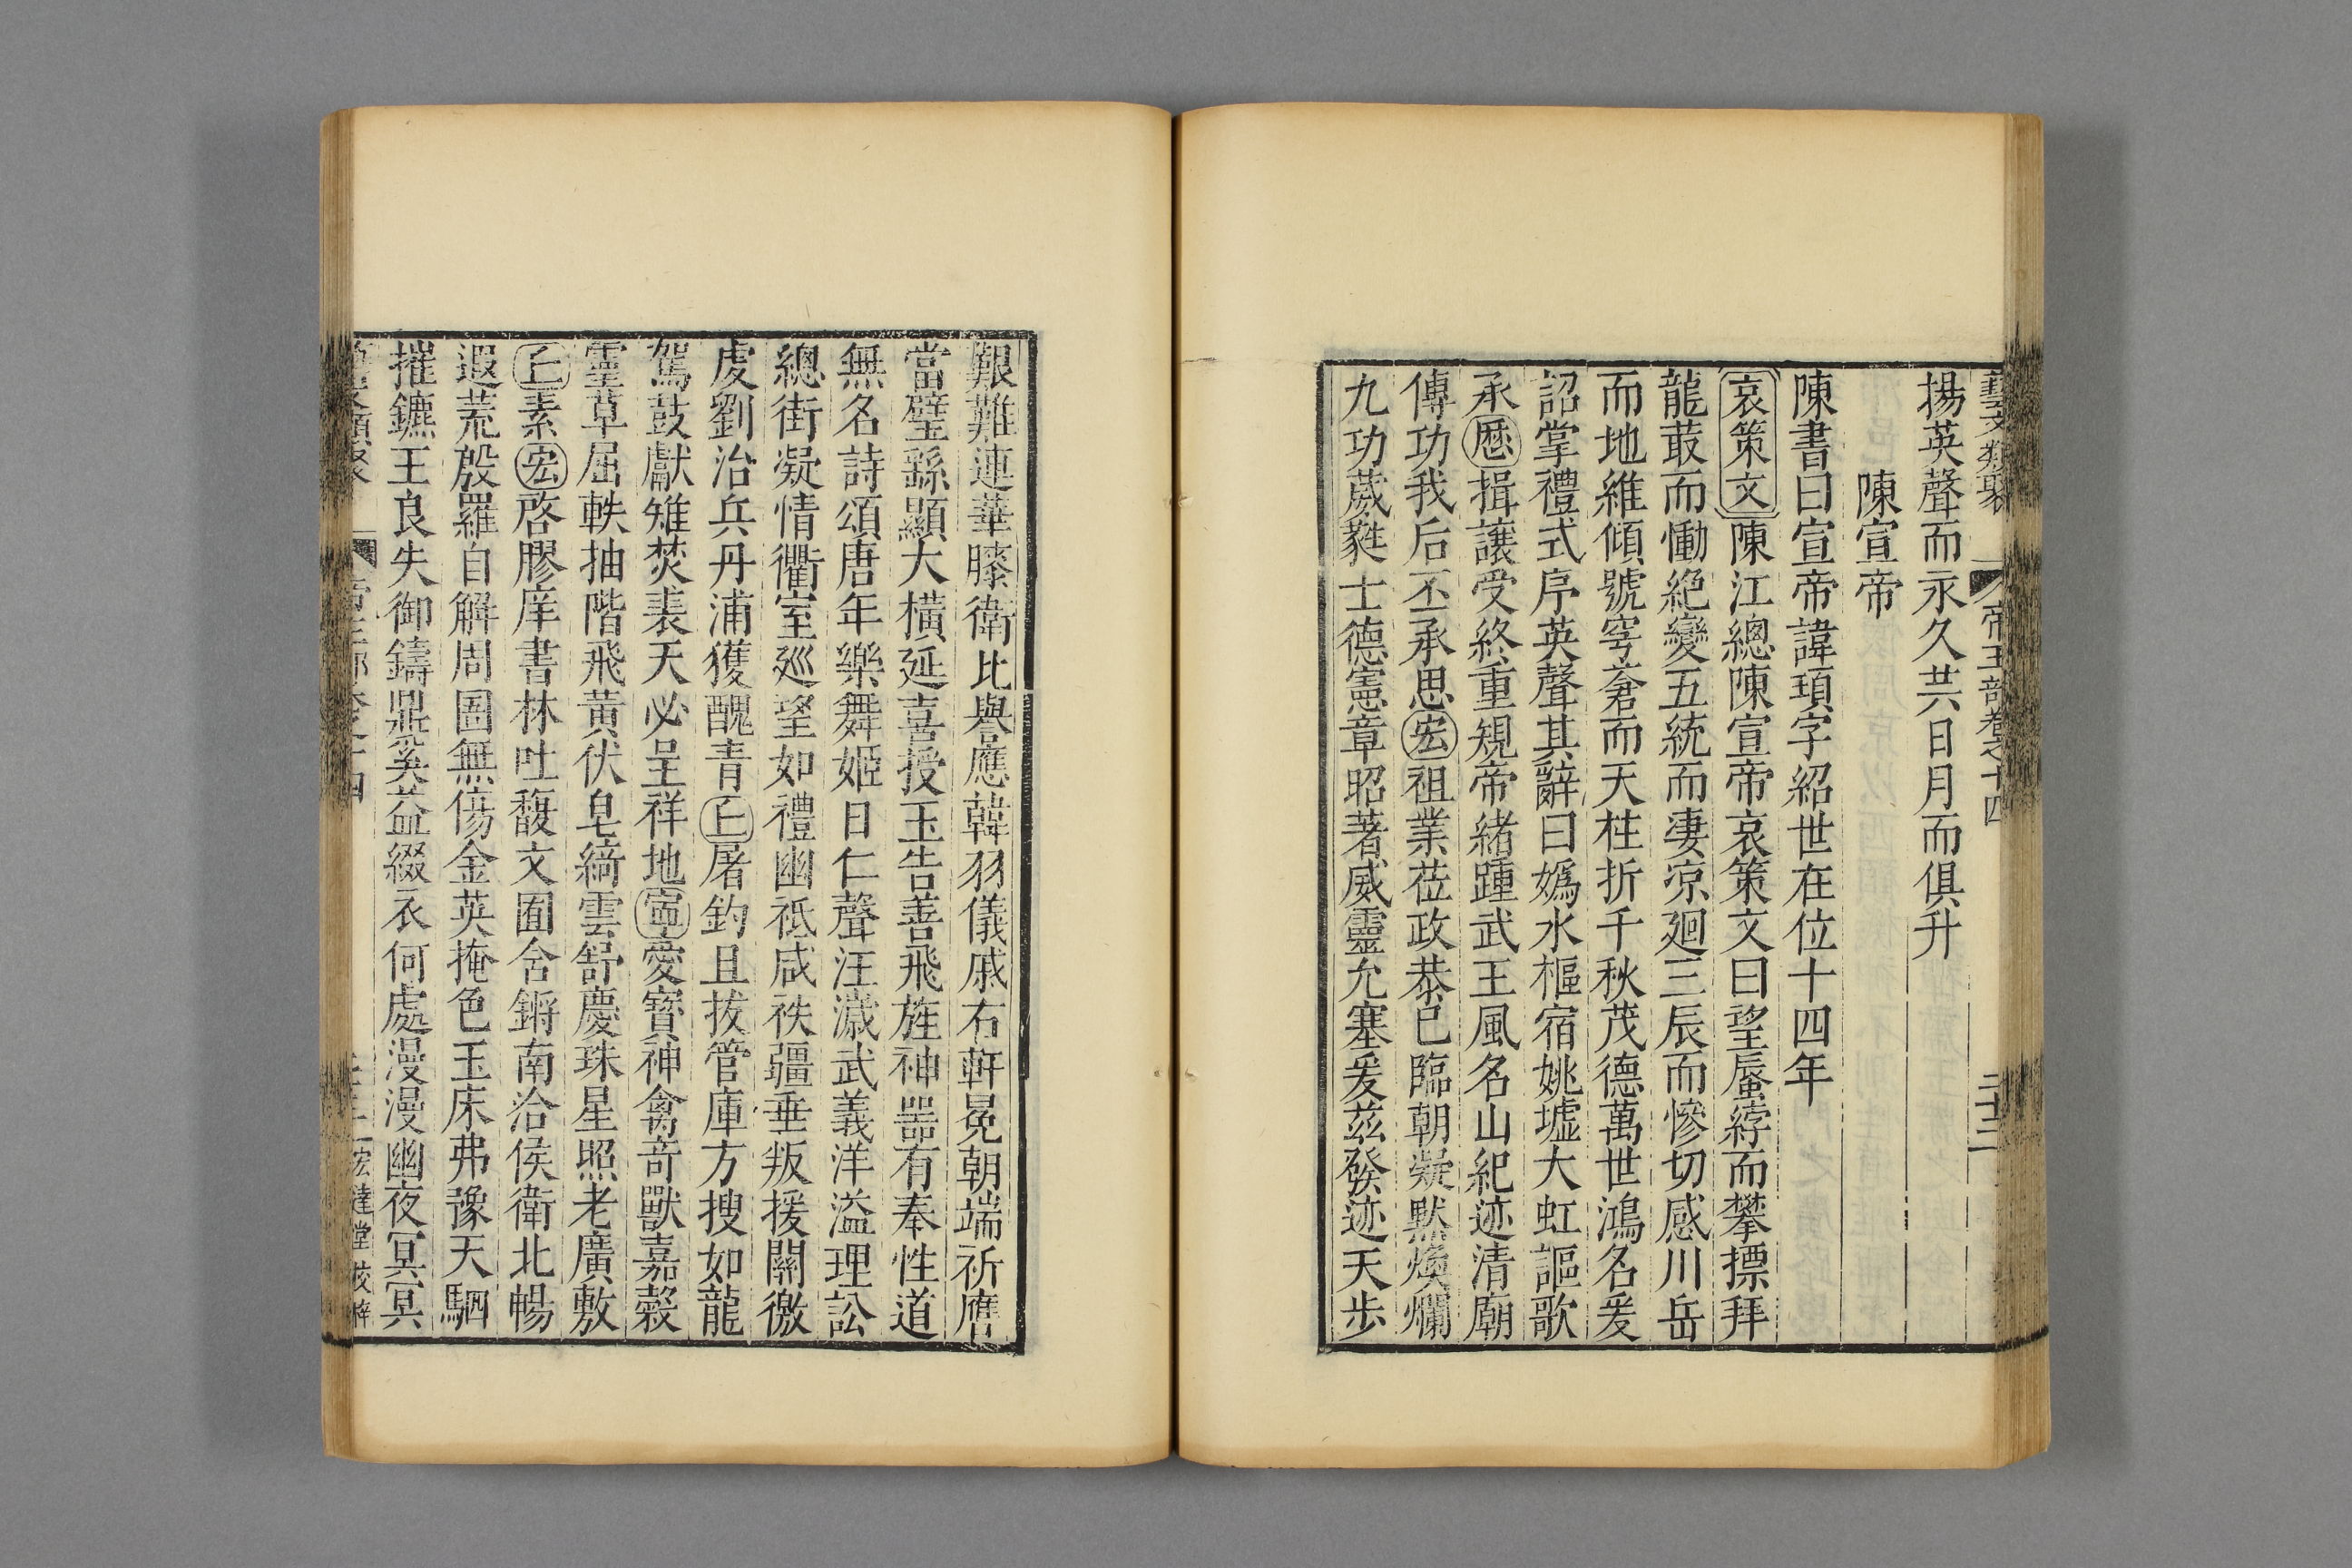 藝文類聚 帝王部卷之十四 二十三
揚英聲而永久共日月而俱升
陳宣帝
陳書曰宣帝諱頊字紹世在位十四年
哀策文陳江總陳宣帝哀策文曰望蜃綍而攀摽拜
龍菆而慟絶變五統而淒凉廻三辰而慘切感川岳
而地維傾號穹蒼而天柱折千秋茂德萬世鴻名爰
詔掌禮式序英聲其辭曰嬀水樞宿姚墟大虹謳歌
承歷揖讓受終重規帝緒踵武王風名山紀迹清廟
傳功我后丕承思宏祖業莅政恭己臨朝凝默煥爛
九功葳蕤士德憲章昭著威靈允塞爰茲發迹天步
艱難連華滕衛比譽應韓羽儀戚右軒冕朝端祈膺
當璧繇顯大橫延喜授玉告善飛旌神噐有奉性道
無名詩頌唐年樂舞姬日仁聲汪濊武義洋溢理訟
總街凝情衢室巡望如禮幽祗咸秩疆垂叛援關徼
虔劉治兵丹浦獲醜青丘屠釣且拔管庫方搜如龍
駕鼓獻雉焚裘天必呈祥地寧愛寶神禽竒獸嘉穀
靈草屈軼抽階飛黃伏皁綺雲舒慶珠星照老廣敷
丘素宏啓膠庠書林吐馥文囿含鏘南洽侯衛北暢
遐荒殷羅自解周圄無傷金英掩色玉床弗豫天駟
摧鑣王良失御鑄鼎奚益綴衣何處漫漫幽夜冥冥
類聚 十四 宏達堂挍梓